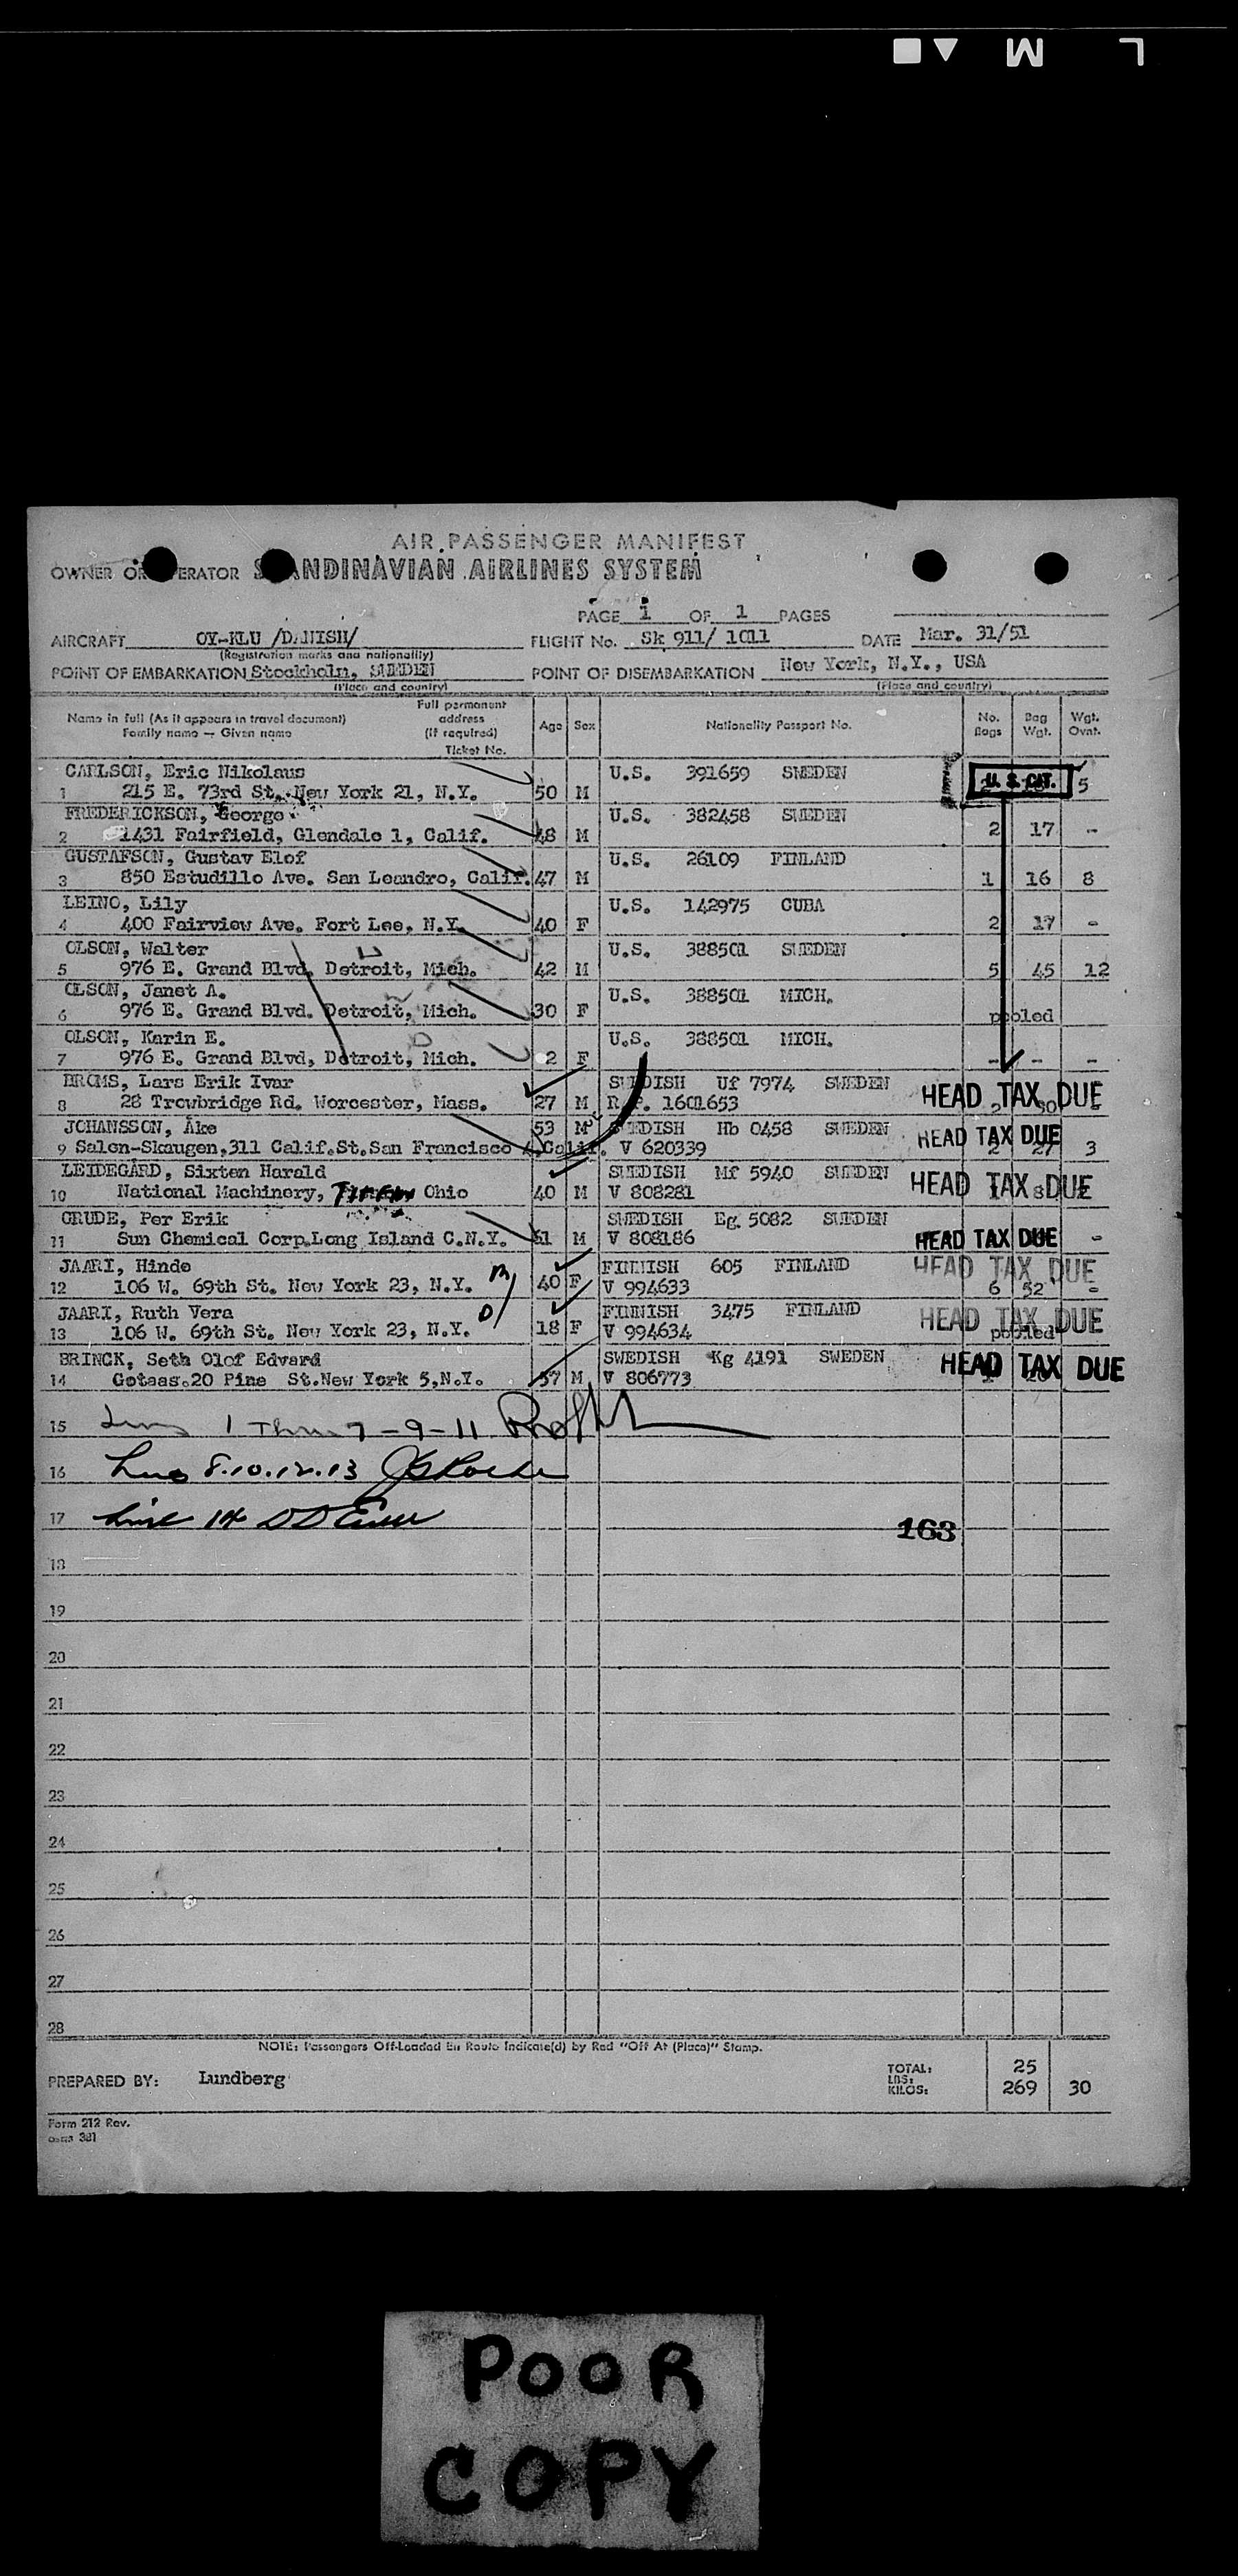 L M
AIR PASSENGER MANIFEST
OWNER OR OPERATOR SCANDINAVIAN AIRLINES SYSTEM
PAGE 1 OF 1 PAGES
AIRCRAFT OY-KLU /DANISH/ FLIGHT No. Sk 911/ 1011 DATE Mar. 31/51
(Registration marks and nationality)
POINT OF EMBARKATION Stockholm, SWEDEN POINT OF DISEMBARKATION New York, N.Y., USA
(Place and country) (Place and country)
Name in full (As it appears in travel document) Family name — Given name Full permanent address (if required) Ticket No. Age Sex Nationality Passport No. No. Bags Bag Wgt. Wgt. Ovnt.
CARLSON, Eric Nikolaus U.S. 391659 SWEDEN U. S. CIT. 5
1 215 E. 73rd St. New York 21, N.Y. 50 M
FREDERICKSON, George U.S. 382458 SWEDEN
2 1431 Fairfield, Glendale 1, Calif. 48 M 2 17 -
GUSTAFSON, Gustav Elof U.S. 26109 FINLAND
3 850 Estudillo Ave. San Leandro, Calif. 47 M 1 16 8
LEINO, Lily U.S. 142975 CUBA
4 400 Fairview Ave. Fort Lee, N.Y. 40 F 2 17 -
OLSON, Walter U.S. 388501 SWEDEN
5 976 E. Grand Blvd, Detroit, Mich. 42 M 5 45 12
OLSON, Janet A. U.S. 388501 MICH.
6 976 E. Grand Blvd. Detroit, Mich. 30 F pooled
OLSON, Karin E. U.S. 388501 MICH.
7 976 E. Grand Blvd, Detroit, Mich. 2 F - - -
BROMS, Lars Erik Ivar SWEDISH Uf 7974 SWEDEN HEAD TAX DUE
8 28 Trowbridge Rd. Worcester, Mass. 27 M R.P. 1601653
JOHANSSON, Åke 53 M SWEDISH Hb 0458 SWEDEN HEAD TAX DUE
9 Salen-Skaugen,311 Calif.St.San Francisco 4,Calif. V 620339 2 27 3
LEIDEGÅRD, Sixten Harald SWEDISH Mf 5940 SWEDEN HEAD TAX DUE
10 National Machinery, Tiffin Ohio 40 M V 808281
GRUDE, Per Erik SWEDISH Eg. 5082 SWEDEN
11 Sun Chemical Corp.Long Island C.N.Y. 51 M V 808186 HEAD TAX DUE -
JAARI, Hinde FINNISH 605 FINLAND HEAD TAX DUE
12 106 W. 69th St. New York 23, N.Y. 40 F V 994633 6 52 -
JAARI, Ruth Vera FINNISH 3475 FINLAND HEAD TAX DUE
13 106 W. 69th St. New York 23, N.Y. 18 F V 994634 pooled
BRINCK, Seth Olof Edvard SWEDISH Kg 4191 SWEDEN HEAD TAX DUE
14 Gotaas.20 Pine St.New York 5,N.Y. 57 M V 806773
15 1 Thru 7 - 9 - 11
16 8.10.12.13
17 Line 14
163
18
19
20
21
22
23
24
25
26
27
28
NOTE: Passengers Off-Loaded En Route Indicate(d) by Red "Off At (Place)" Stamp.
PREPARED BY: Lundberg TOTAL: 25
LBS:
KILOS: 269 30
Form 212 Rev.
381
POOR
COPY